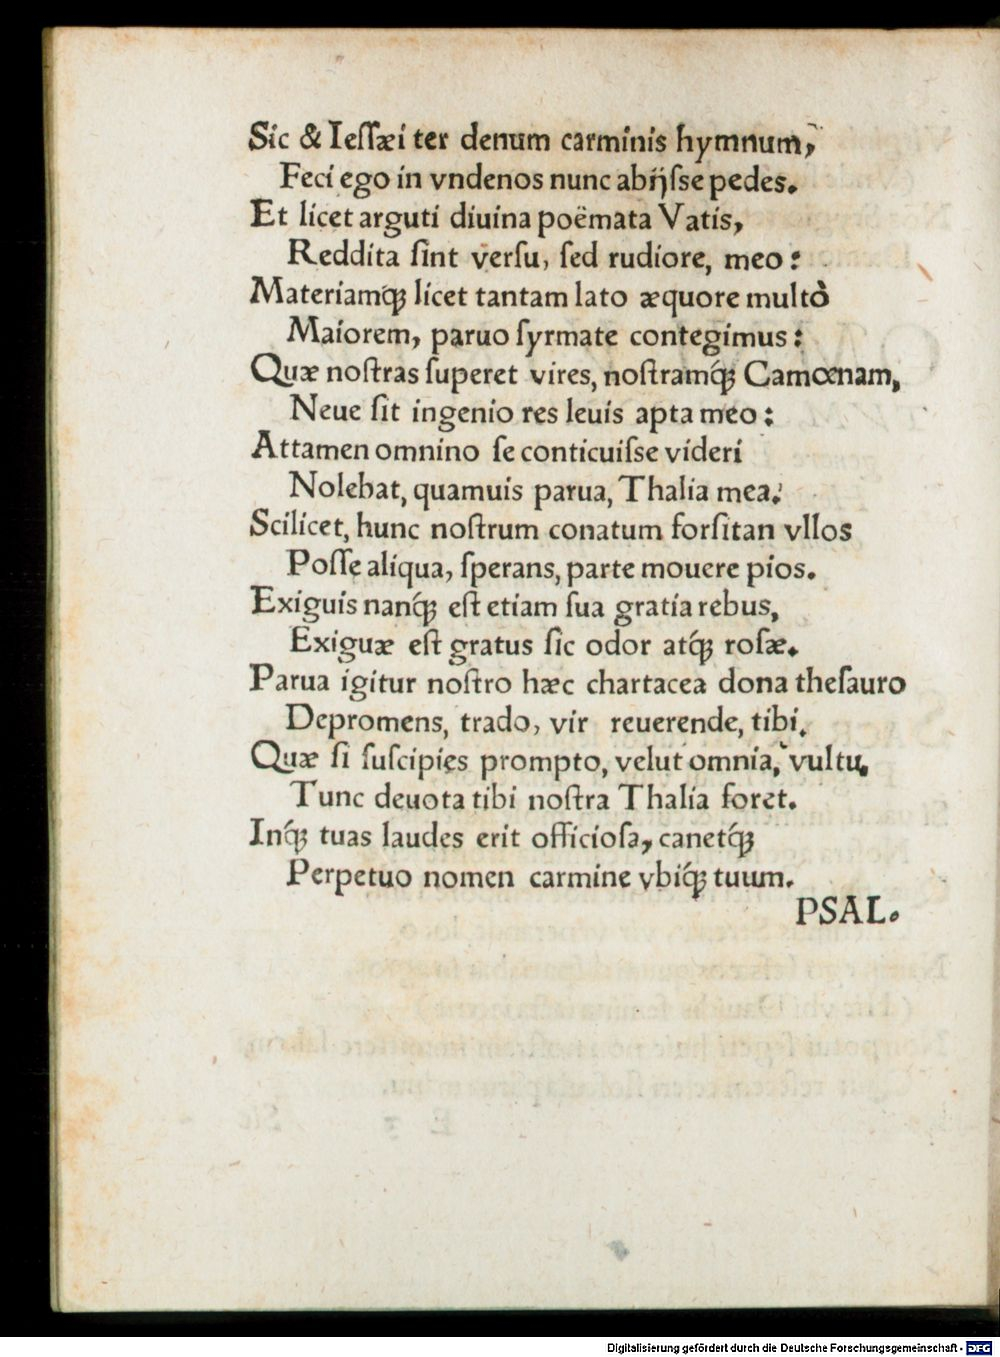 Sic & Ieſſæi ter denum carminis hymnum,
Feci ego in vndenos nunc abijſse pedes.
Et licet arguti diuina poëmata Vatis,
Reddita ſint verſu, ſed rudiore, meo:
Materiamq́ꝫ licet tantam lato æquore multò
Maiorem, paruo ſyrmate contegimus:
Quæ noſtras ſuperet vires, noſtramq́ꝫ Camœnam,
Neue ſit ingenio res leuis apta meo:
Attamen omnino ſe conticuiſse videri
Nolebat, quamuis parua, Thalia mea.
Scilicet, hunc noſtrum conatum forſitan vllos
Poſſe aliqua, ſperans, parte mouere pios.
Exiguis nanq́ꝫ eſt etiam ſua gratia rebus,
Exiguæ eſt gratus ſic odor atq́ꝫ roſæ.
Parua igitur noſtro hæc chartacea dona theſauro
Depromens, trado, vir reuerende, tibi.
Quæ ſi ſuſcipies prompto, velut omnia, vultu,
Tunc deuota tibi noſtra Thalia foret.
Inq́ꝫ tuas laudes erit officioſa, canetq́ꝫ
Perpetuo nomen carmine vbiq́ꝫ tuum.
PSAL.
Digitalisierung gefördert durch die Deutsche Forschungsgemeinschaft - DFG